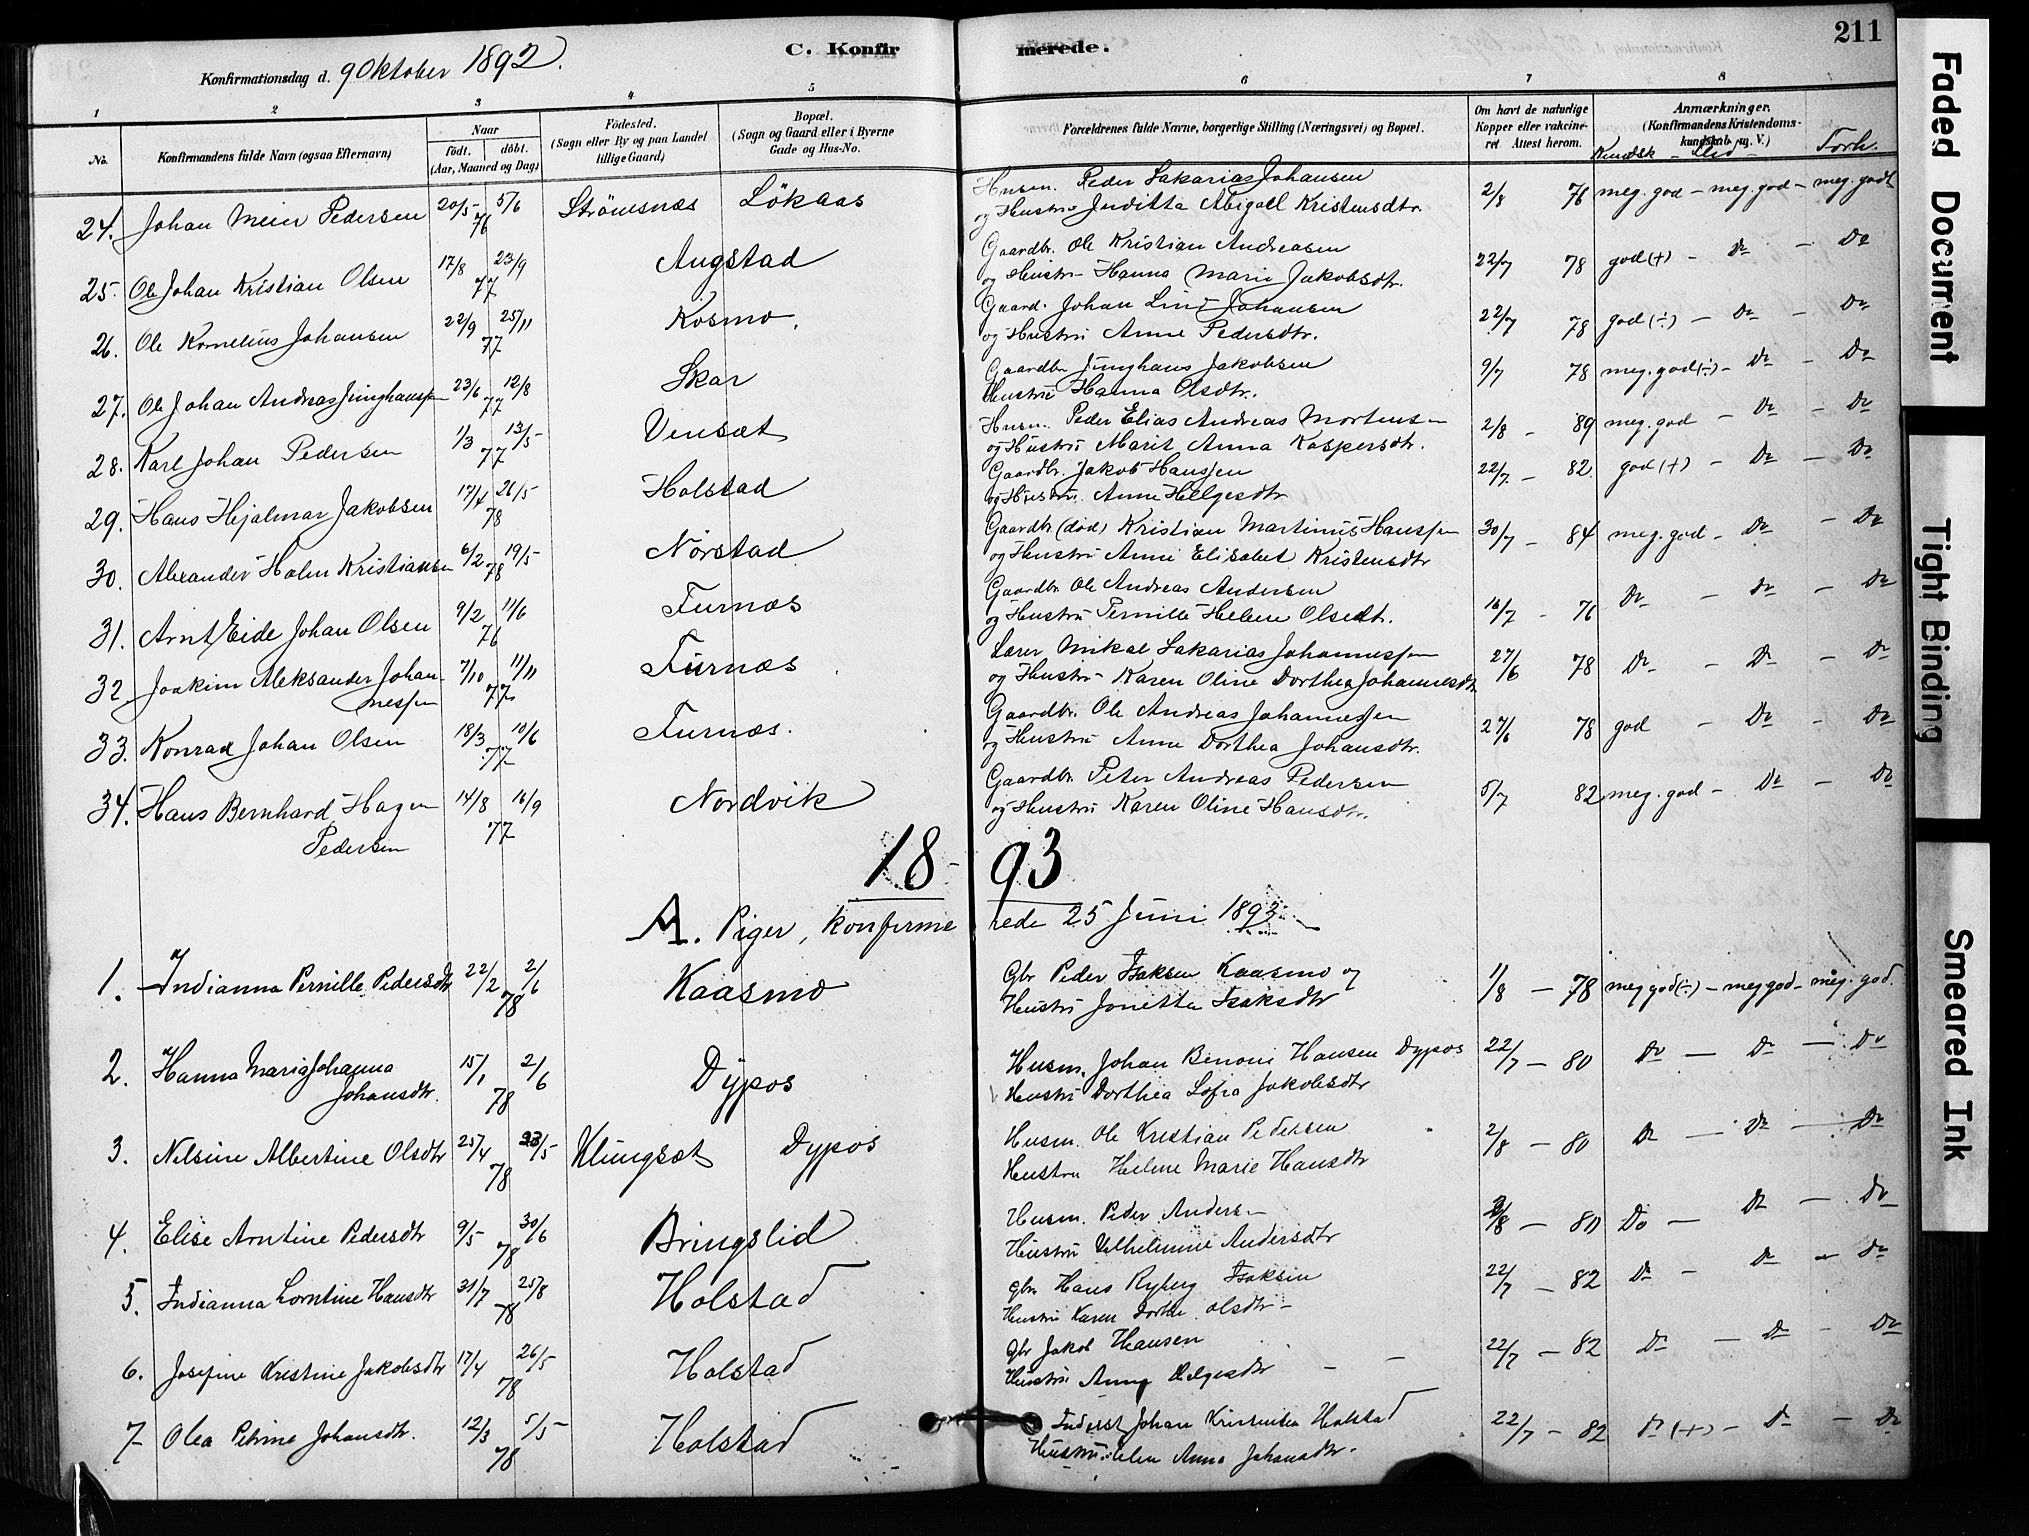 211
C. Konfirmerede.
Konfirmationsdag d. 9 Oktober 1892.
1 2 3 4 5 6 7 8
No. Konfirmandens fulde Navn (ogsaa Efternavn) Naar födt. döbt. (Aar, Maaned og Dag) Födested. (Sogn eller By og paa Landet tillige Gaard) Bopæl. (Sogn og Gaard eller i Byerne Gade og Hus-No. Forældrenes fulde Navne, borgerlige Stilling (Næringsvei) og Bopæl. Om havt de naturlige Kopper eller vakcineret Attest herom. Anmærkninger. (Konfirmandens Kristendomskundskab og. V.)
Kundsk - Flid - Forh.
24. Johan Meier Pedersen 20/5 5/6 76 Strömsnæs Lökaas Husm. Peder Sakarias Johansen 2/8 76 meg. god - meg. god - meg. godt
og Hustru Juditta Abigael Kristensdtr.
25. Ole Johan Kristian Olsen 17/8 23/9 77 Augstad Gaardbr. Ole Kristian Andreasen 22/7 78 god (+) - Do - Do
og Hustru Hanna Marie Jakobsdtr.
26. Ole Kornelius Johansen 22/9 25/11 77 Kosmo. Gaard. Johan Lind Johansen 22/7 78 god (÷) - Do - Do
og Hustru Anne Pedersdtr.
27. Ole Johan Andreas Junghanssen 23/6 12/8 77 Skar Gaardbr Junghans Jakobsen 9/7 78 meg. god (÷) - Do - Do
Hustru Hanna Olsdtr.
28. Karl Johan Pedersen 1/3 13/5 77 Vensæt Husm. Peder Elias Andreas Mortensen 2/8 - 89 meg. god - Do - Do
og Hustru Marit Anna Kaspersdtr.
29. Hans Hjalmar Jakobsen 17/4 26/5 78 Holstad Gaardbr. Jakob Hanssen 22/7 - 82 god (+) - Do - Do
og Hustru. Anne Helgesdtr
30. Alexander Holm Kristiansen 6/2 19/5 78 Nörstad Gaardbr. (död) Kristian Martinus Hanssen 30/7 - 84 meg. god - Do - Do
og Hustru Anne Elisabet Kristensdtr
31. Arnt Eide Johan Olsen 9/2 11/6 76 Furnæs Gaardbr. Ole Andreas Andersen 16/7 - 76 Do - Do - Do
og Hustru Pernille Helene Olsedtr.
32 Joakim Aleksander Johannessen 7/10 11/11 77 Furnæs Lærer Mikal Sakarias Johannessen 27/6 78 Do - Do - Do
og Hustru Karen Oline Dorthea Johannesdtr
33. Konrad Johan Olsen 18/3 10/6 77 Furnæs. Gaardbr. Ole Andreas Johannessen 27/6 78 god - Do - Do
og Hustru Anne Dorthea Johansdtr.
34. Hans Bernhard Hagen 14/8 16/9 77 Nordvik Gaardbr. Peter Andreas Pedersen 5/7 82 meg. god - Do - Do
Pedersen og Hustru Karen Oline Hansdtr.
18-93
A. Piger, konfirmerede 25 Juni 1893
1. Indianna Pernille Pedersdtr 22/2 2/6 78 Kaasmo Gbr Peder Isaksen Kaasmo og 1/8 - 78 meg god (÷) - meg god - meg. god.
Hustru Jonetta Isaksdtr
2. Hanna Maria Johanna 15/1 2/6 78 Dypos Husm. Johan Benoni Hansen Dypos 22/7 - 80 Do - Do - Do
Johansdtr. Hustru Dorthea Sofia Jakobsdtr
3. Nilsine Albertine Olsdtr 25/4 /5 78 Klungsæt Dypos Husm. Ole Kristian Pedersen 2/8 - 80 Do - Do - Do
Hustru Helene Marie Hansdtr
4. Elise Arntine Pedersdtr 9/5 30/6 78 Bringslid Husm. Peder Andersen /8 - 80 Do - Do - Do
Hustru Vilhelmine Andersdtr
5. Indianna Lorntine Hansdtr 31/7 25/8 78 Holstad Gbr Hans Ryberg Isaksen 22/7 - 82 Do - Do - Do
Hustru Karen Dorthe Olsdtr -
6. Josefine Kristine Jakobsdtr 17/4 26/5 78 Holstad Gbr Jakob Hansen 22/7 - 82 Do - Do - Do
Hustru Anne Helgesdtr - -
7- Olea Petrine Johansdtr. 12/3 5/5 78 Holstad Inderst Johan Kristensen Holstad 22/7 - 82 Do (+) - Do - Do
Hustru Elen Anna Johansdtr.
Faded Document
Tight Binding
Smeared Ink